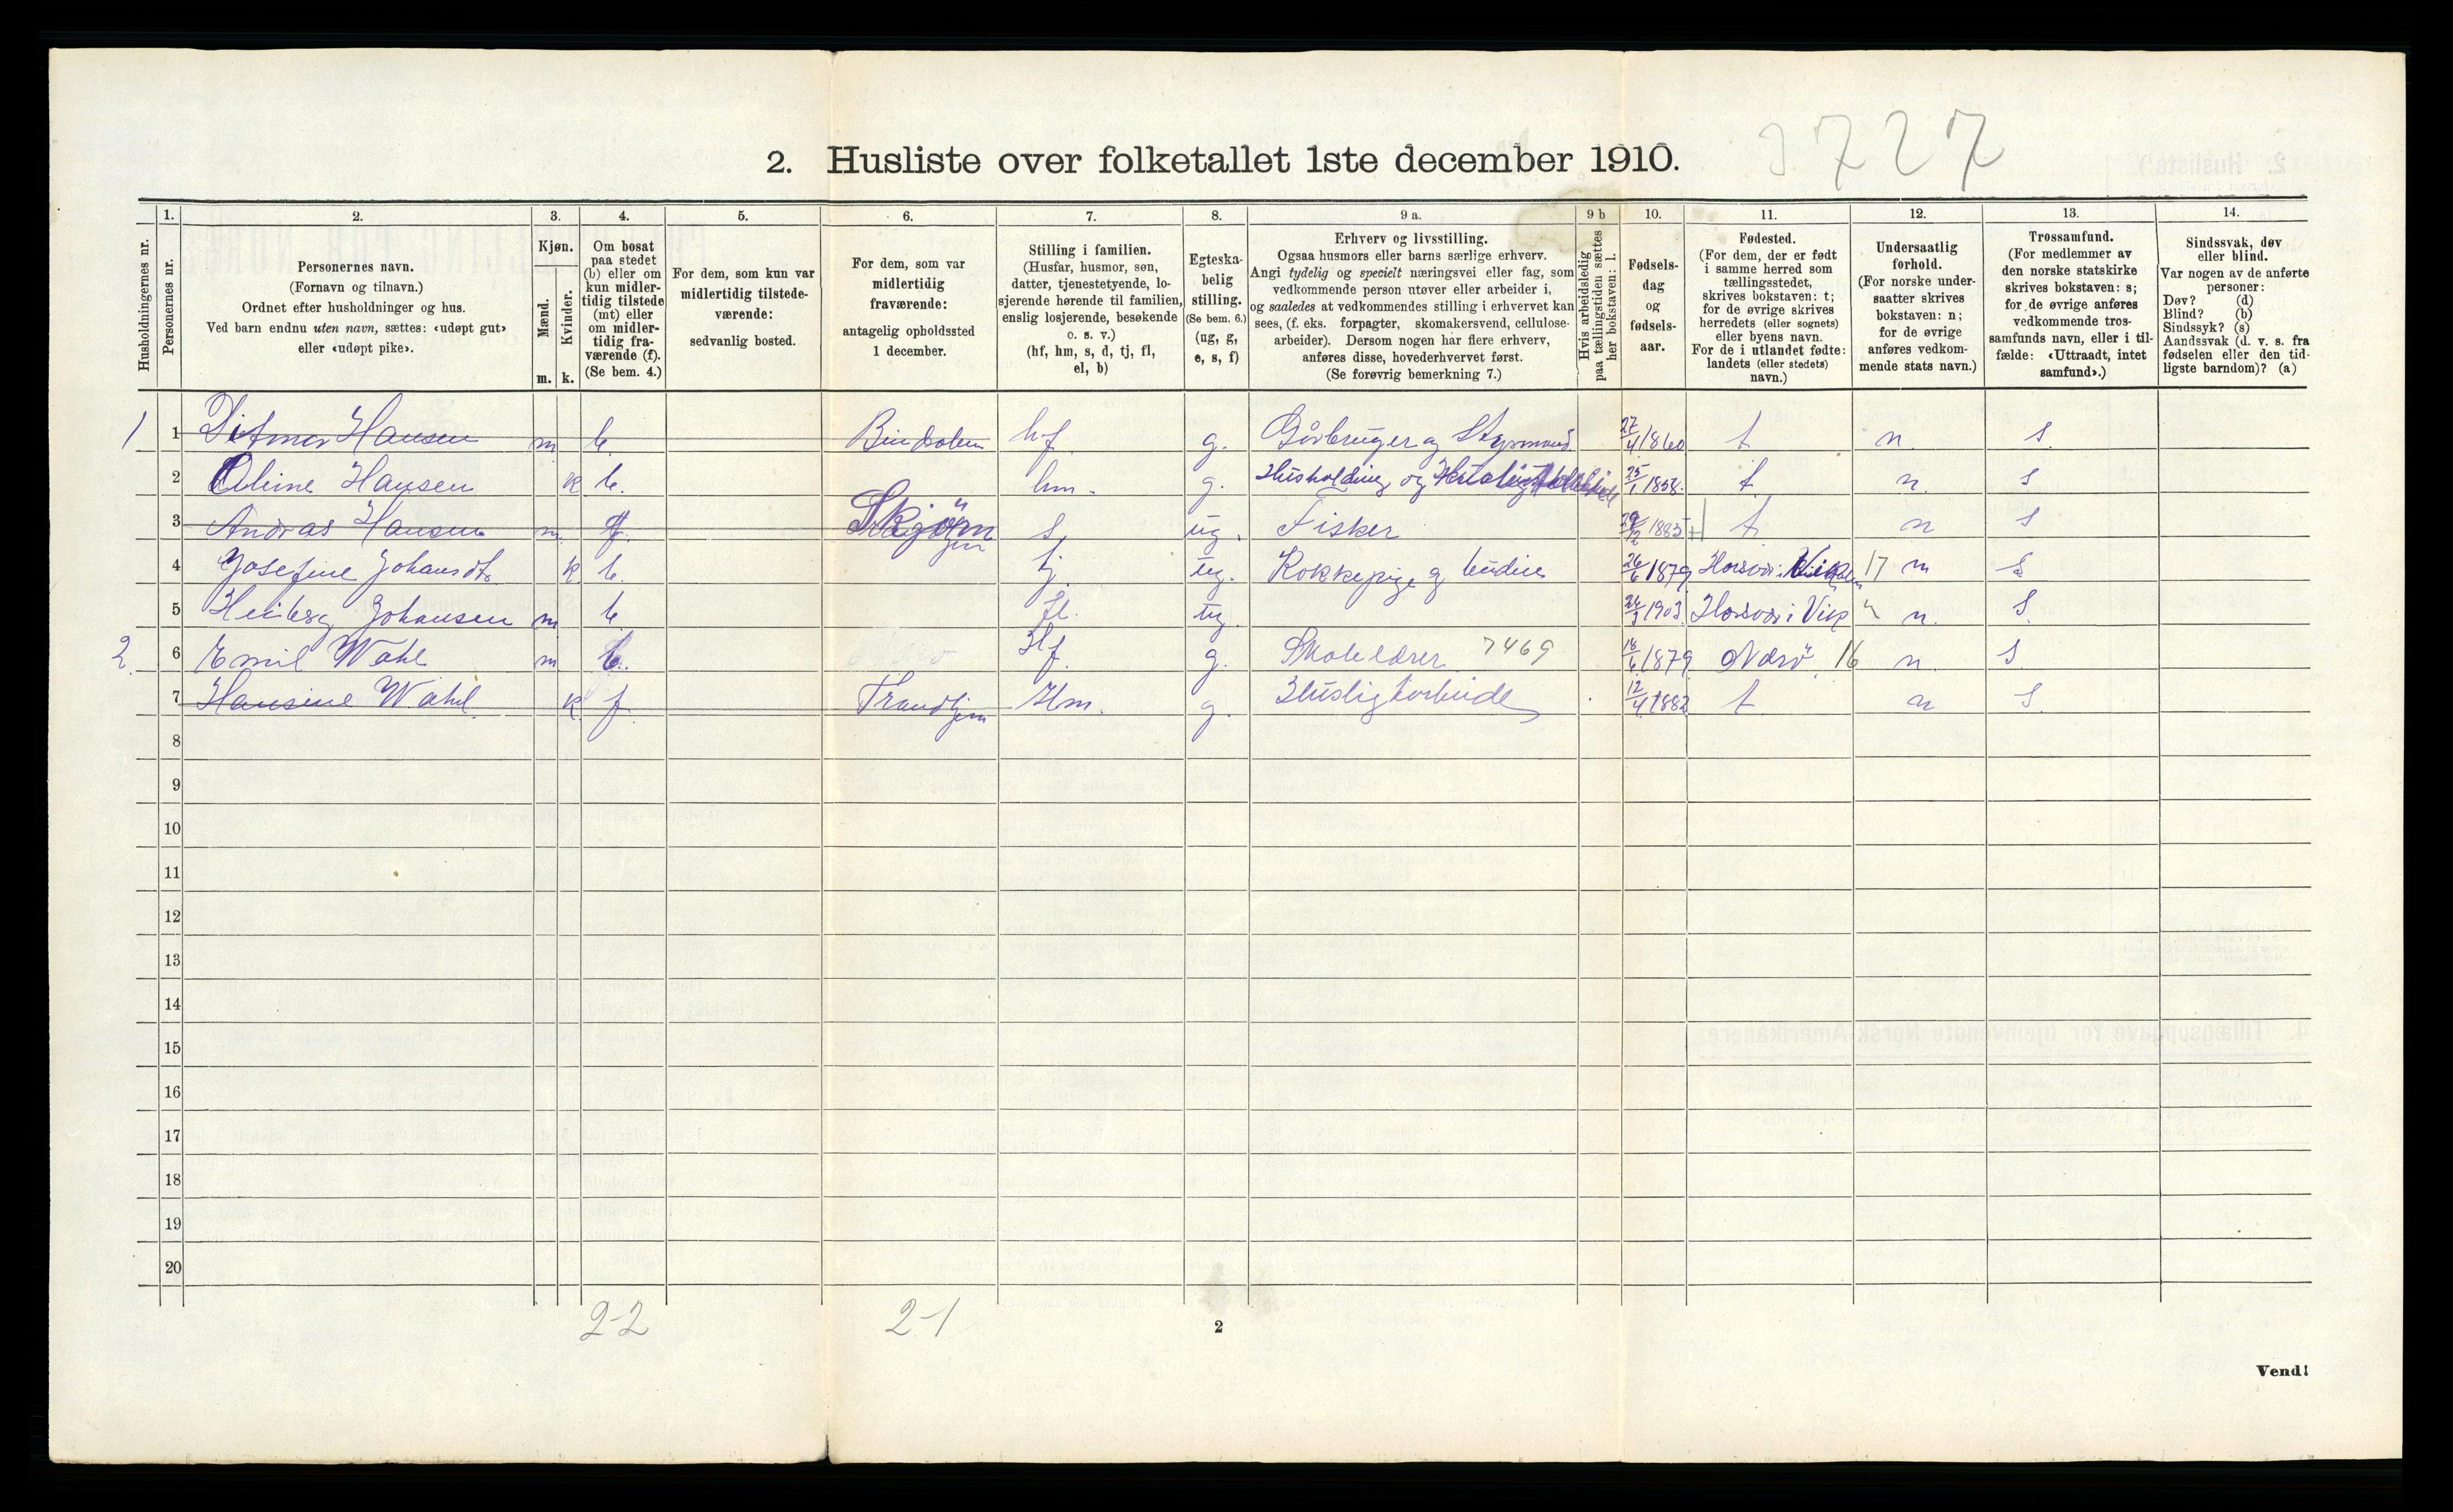 3727
2. Husliste over folketallet 1ste december 1910.
Husholdningernes nr.
1. Personernes nr.
2. Personernes navn.
(Fornavn og tilnavn.)
Ordnet efter husholdninger og hus.
Ved barn endnu uten navn, sættes: «udøpt gut»
eller «udøpt pike».
3. Kjøn.
Mænd. m.
Kvinder. k.
4. Om bosat
paa stedet
(b) eller om
kun midler-
tidig tilstede
(mt) eller
om midler-
tidig fra-
værende (f).
(Se bem. 4.)
5. For dem, som kun var
midlertidig tilstede-
værende:
sedvanlig bosted.
6. For dem, som var
midlertidig
fraværende:
antagelig opholdssted
1 december.
7. Stilling i familien.
(Husfar, husmor, søn,
datter, tjenestetyende, lo-
sjerende hørende til familien,
enslig losjerende, besøkende
o. s. v.)
(hf, hm, s, d, tj, fl,
el, b)
8. Egteska-
belig
stilling.
(Se bem. 6.)
(ug, g,
e, s, f)
9 a. Erhverv og livsstilling.
Ogsaa husmors eller barns særlige erhverv.
Angi tydelig og specielt næringsvei eller fag, som
vedkommende person utøver eller arbeider i,
og saaledes at vedkommendes stilling i erhvervet kan
sees, (f. eks. forpagter, skomakersvend, cellulose-
arbeider). Dersom nogen har flere erhverv,
anføres disse, hovederhvervet først.
(Se forøvrig bemerkning 7.)
9 b Hvis arbeidsledig
paa tællingstiden sættes
her bokstaven: l.
10. Fødsels-
dag
og
fødsels-
aar.
11. Fødested.
(For dem, der er født
i samme herred som
tællingsstedet,
skrives bokstaven: t;
for de øvrige skrives
herredets (eller sognets)
eller byens navn.
For de i utlandet fødte:
landets (eller stedets)
navn.)
12. Undersaatlig
forhold.
(For norske under-
saatter skrives
bokstaven: n;
for de øvrige
anføres vedkom-
mende stats navn.)
13. Trossamfund.
(For medlemmer av
den norske statskirke
skrives bokstaven: s;
for de øvrige anføres
vedkommende tros-
samfunds navn, eller i til-
fælde: «Uttraadt, intet
samfund».)
14. Sindssvak, døv
eller blind.
Var nogen av de anførte
personer:
Døv? (d)
Blind? (b)
Sindssyk? (s)
Aandssvak (d. v. s. fra
fødselen eller den tid-
ligste barndom)? (a)
1 1 Ditmar Hansen m b. Bindalen hf g. Gårbruger og Styrmand 27/4 1860 t n. s.
2 Oline Hansen k b. hm. g. Husholding og 25/1 1858. t. n. s
3 Andras Hansen m. f. Skjørn s. ug. Fisker 1885 t n s
4 Josefine Johansdt. k b. tj. ug. Kokkepige og budeie 26/6 1879 Horsvær i Vik 17 n s
5 Heiberg Johansen m b fl. ug. 1903. Horsvær i Vik n. s.
2. 6 Emil Wahl m b. Hf. g. Skolelærer 7469 18/6 1879 Nærö 16 n. s.
7 Hansine Wahl k f. Trondhjem Hm. g. Husligtarbeide 12/4 1882 t n s.
8
9
10
11
12
13
14
15
16
17
18
19
20
2-2 2-1
2
Vend!